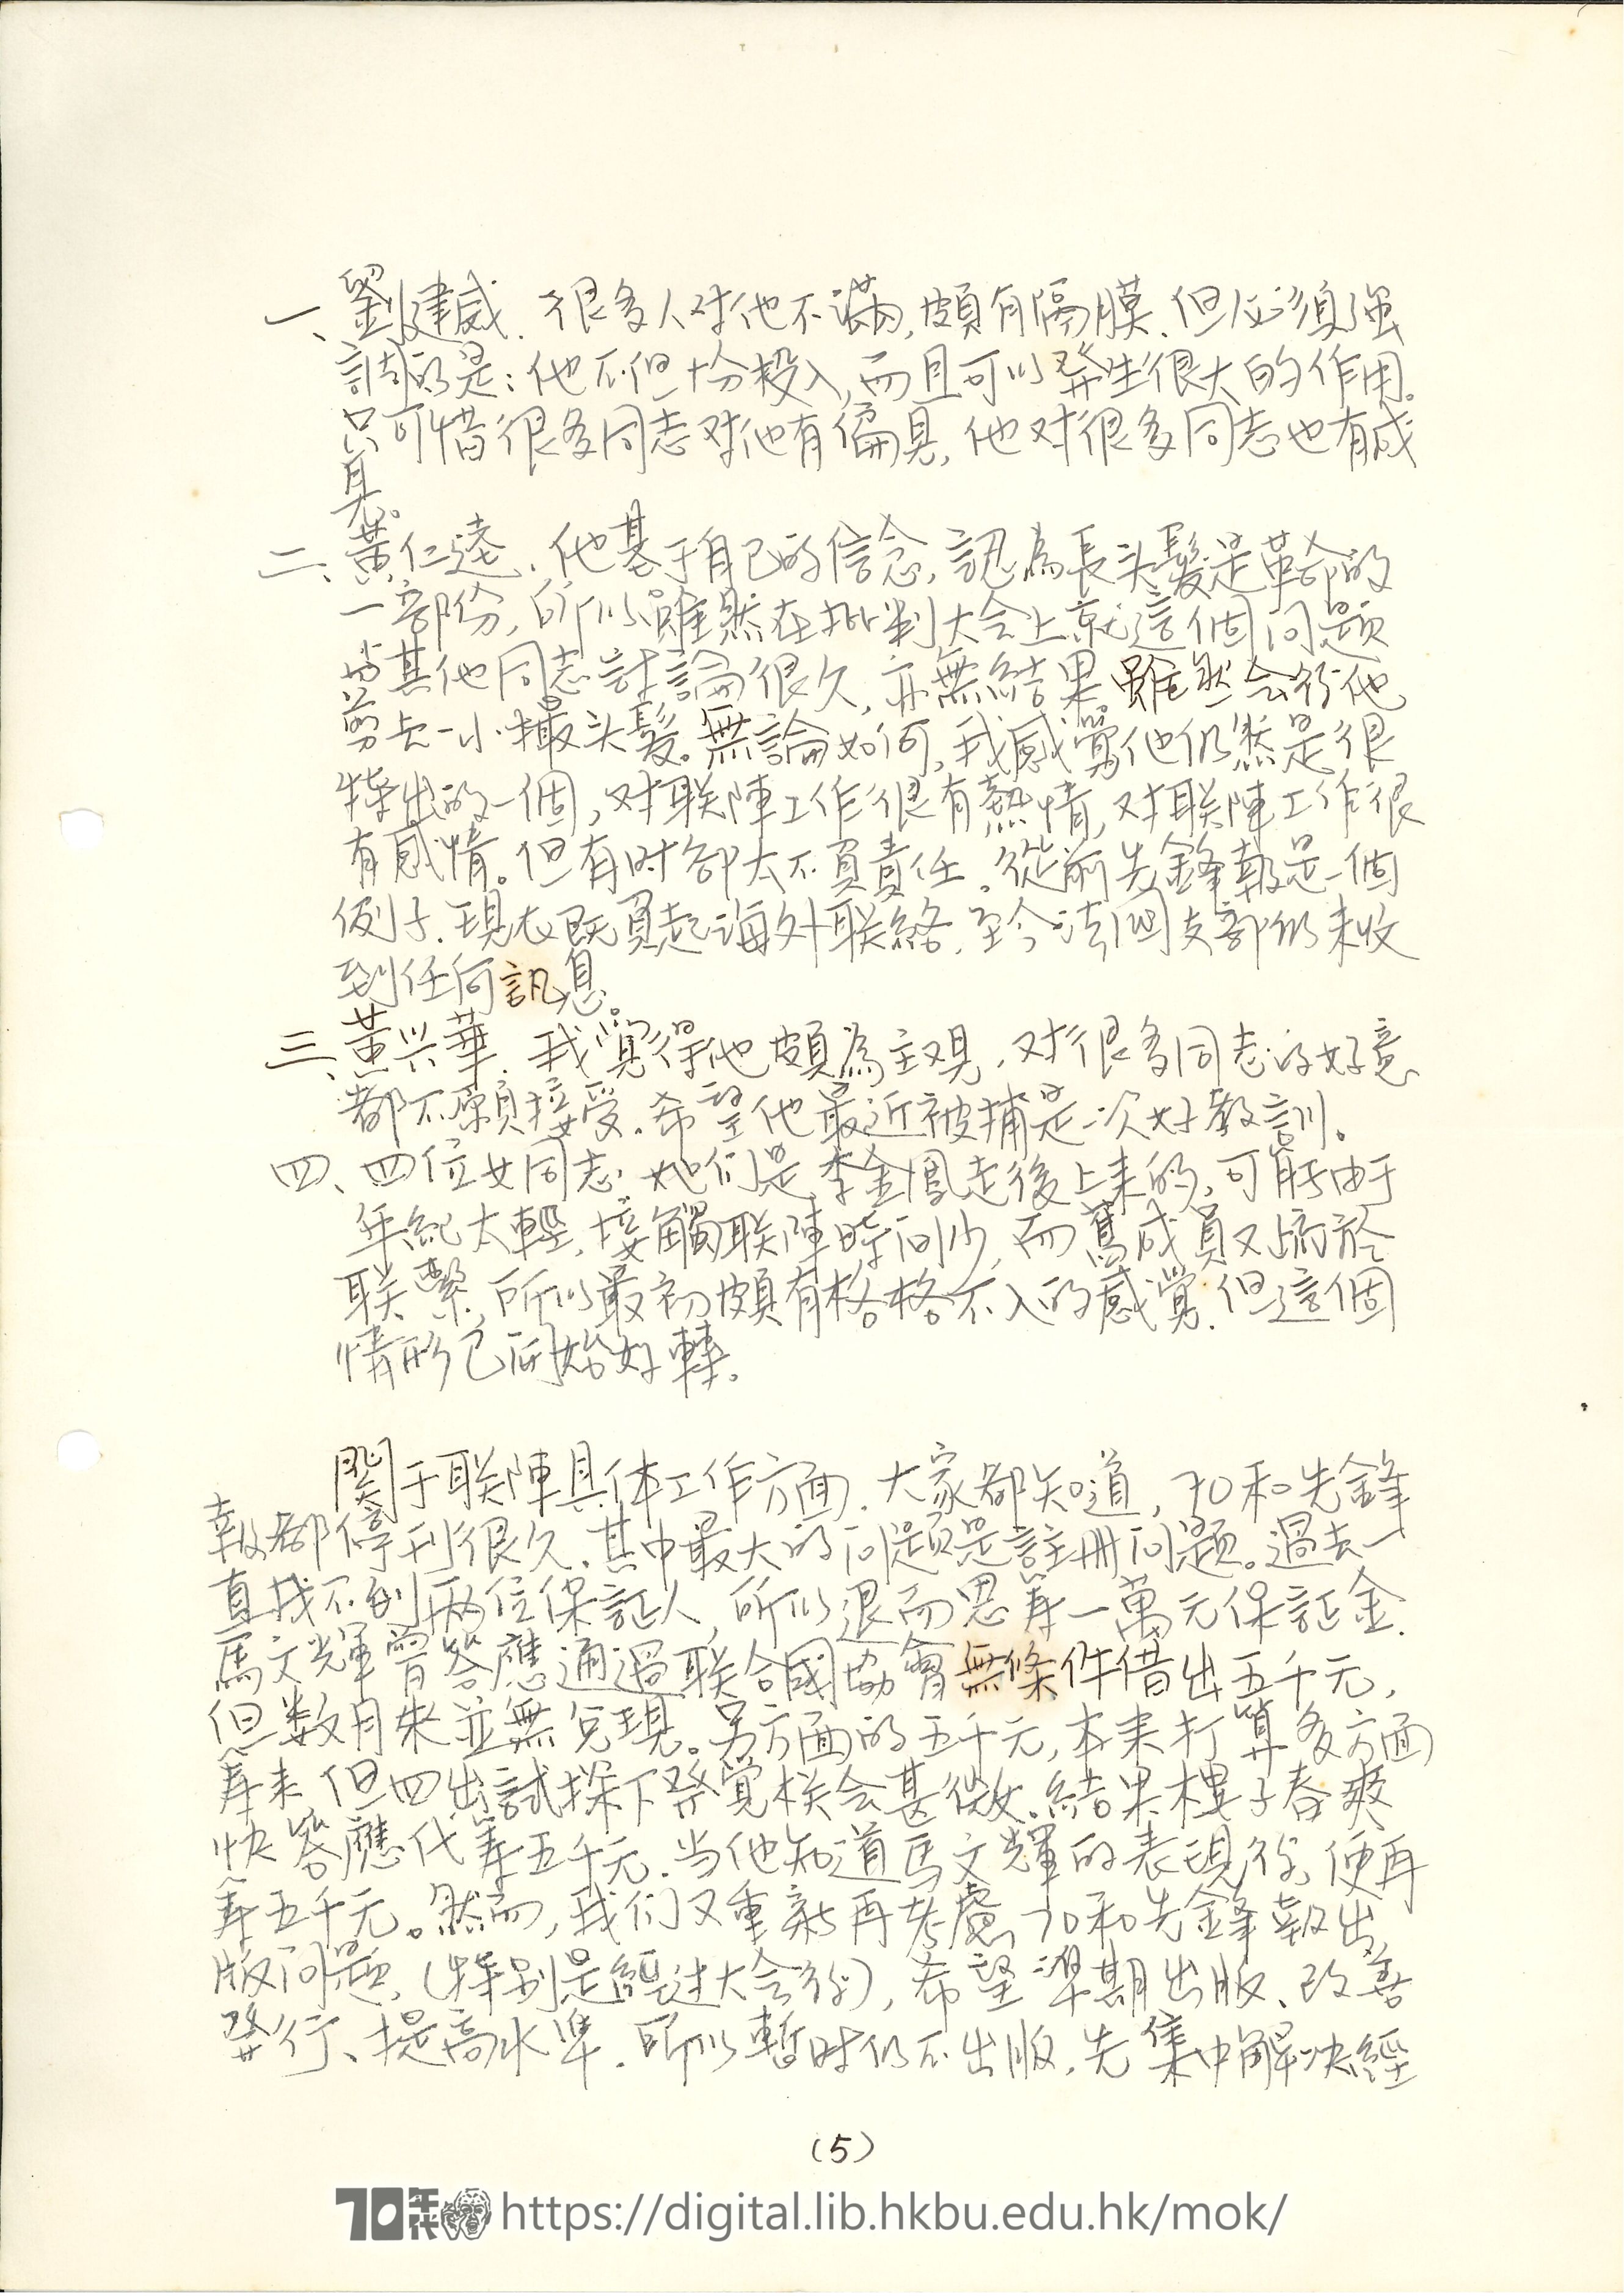 一、劉健威. 很多人对他不滿, 頗有隔膜. 但必須强
調的是: 他不但十分投入, 而且可以発生很大的作用.
只可惜很多同志对他有偏見, 他对很多同志也有成
見.
二、黃仁逵. 他基于自己的信念, 認為長头髮是革命的
一部份, 所以雖然在批判大会上就這個问题
与其他同志討論很久, 亦無結果. 雖然会後他
剪去一小撮头髮. 無論如何, 我感覺他仍然是很
特出的一個, 对联陣工作很有熱情, 对联陣工作很
有感情. 但有时卻太不負責任. 從前先鋒報是一個
例子. 現在既負起海外联絡, 至今法国支部仍未收
到任何訊息.
三、黃兴華. 我覺得他頗為主观, 对很多同志的好意
都不願接受. 希望他最近被捕是一次好教訓.
四、四位女同志. 她们是李金鳳走後上来的, 可能由于
年紀太輕, 接觸联陣時间少, 而舊成員又疏於
联繫, 所以最初頗有格格不入的感覺. 但這個
情形已開始好轉.
関于联陣具体工作方面. 大家都知道, 70和先鋒
報都停刊很久. 其中最大的问题是註冊问题. 過去一
直找不到兩位保証人, 所以退而思筹一萬元保証金.
馬文輝曾答應通過联合國協會無條件借出五千元,
但数月来並無兌現. 另方面的五千元, 本来打算多方面
筹来, 但四出試探下発覚机会甚微. 結果樓子春爽
快答應代筹五千元. 当他知道馬文輝的表現後, 便再
筹五千元. 然而, 我们又重新再考慮70和先鋒報出
版问题, (特别是經过大会後), 希望準期出版、改善
発行、提高水準. 所以暫时仍不出版, 先集中解决經
(5)
70年代 https://digital.lib.hkbu.edu.hk/mok/